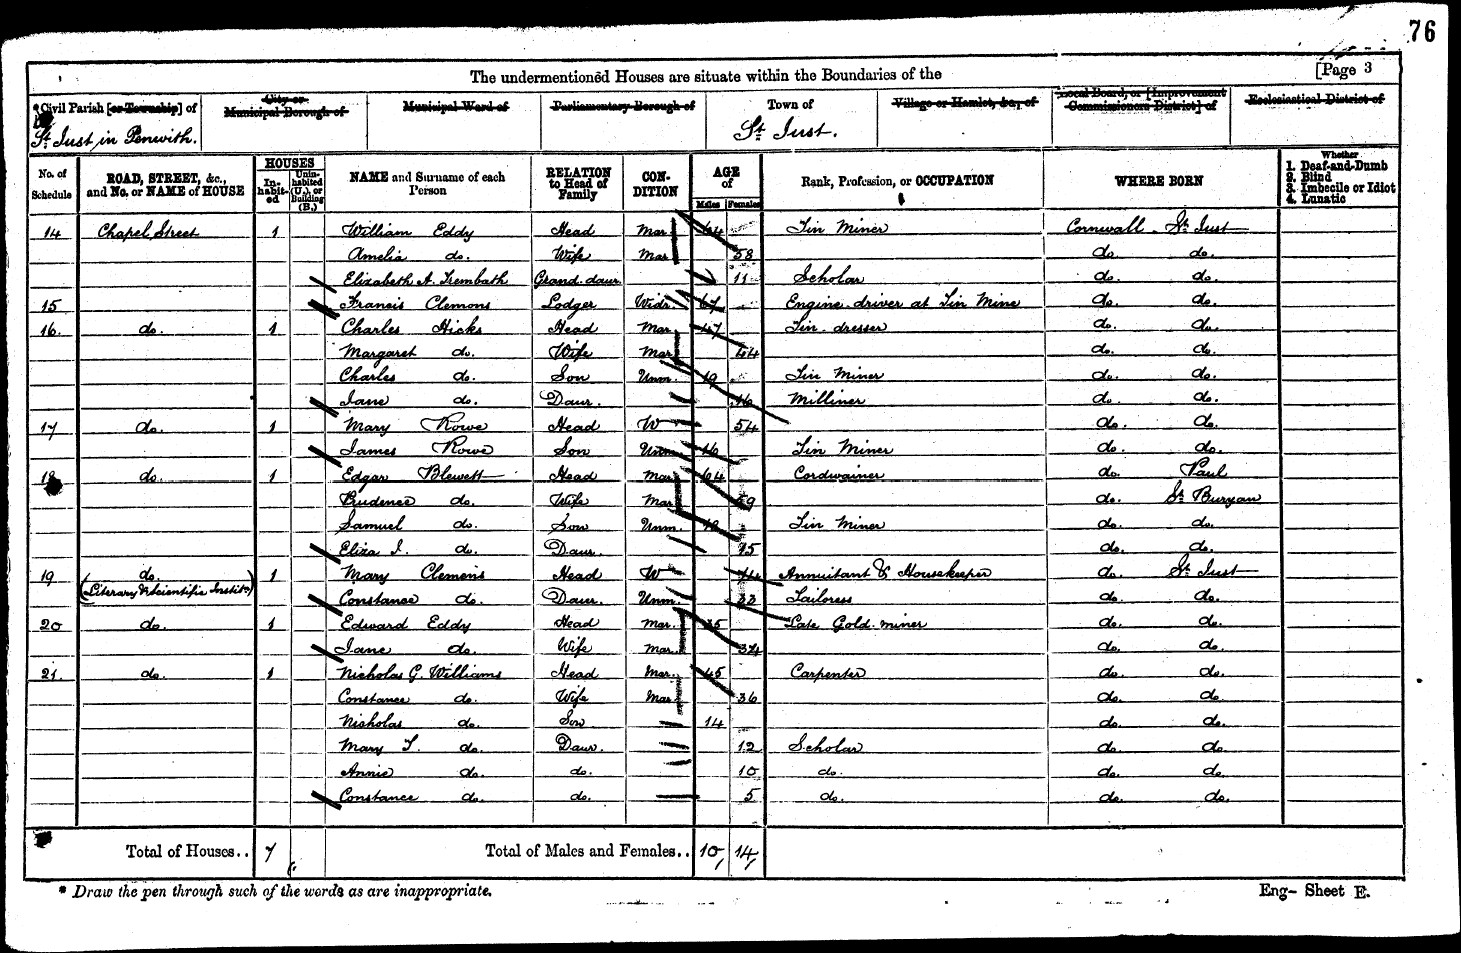 76
The undermentioned Houses are situate within the Boundaries of the [Page 3
*Civil Parish [or Township] of City or Municipal Borough of Municipal Ward of Parliamentary Borough of Town of Village or Hamlet, &c., of Local Board, or [Improvement Commissioners District] of Ecclesiastical District of
St. Just in Penwith. St. Just.
No. of Schedule ROAD, STREET, &c., and No. or NAME of HOUSE HOUSES Inhabited Uninhabited (U.), or Building (B.) NAME and Surname of each Person RELATION to Head of Family CONDITION AGE of Males Females Rank, Profession, or OCCUPATION WHERE BORN Whether 1. Deaf-and-Dumb 2. Blind 3. Imbecile or Idiot 4. Lunatic
14 Chapel Street 1 William Eddy Head Mar 64 Tin Miner Cornwall St. Just
Amelia do. Wife Mar 58 do. do.
Elizabeth A. Trembath Grand.daur. 11 Scholar do. do.
15 Francis Clemons Lodger Widr. 67 Engine driver at Tin Mine do. do.
16. do. 1 Charles Hicks Head Mar 47 Tin dresser do. do.
Margaret do. Wife Mar 44 do. do.
Charles do. Son Unm. 19 Tin Miner do. do.
Jane do. Daur. 16 Milliner do. do.
17 do. 1 Mary Rowe Head W 54 do. do.
James Rowe Son Unm 16 Tin Miner do. do.
18 do. 1 Edgar Blewett Head Mar 64 Cordwainer do. Paul
Prudence do. Wife Mar do. St. Buryan
Samuel do. Son Unm. Tin Miner do. do.
Eliza J. do. Daur. 15 do. do.
19 do. 1 Mary Clemens Head W Annuitant & Housekeeper do. St. Just
(Literary & Scientific Instite) Constance do. Daur. Unm. 33 Tailoress do. do.
20 do. 1 Edward Eddy Head Mar. 35 Late Gold miner do. do.
Jane do. Wife Mar. 34 do. do.
21. do. 1 Nicholas G. Williams Head Mar. 45 Carpenter do. do.
Constance do. Wife Mar 36 do. do.
Nicholas do. Son 14 do. do.
Mary T. do. Daur. 12 Scholar do. do.
Annie do. do. 10 do. do. do.
Constance do. do. 5 do. do. do.
Total of Houses.. 7 Total of Males and Females.. 10 14
* Draw the pen through such of the words as are inappropriate. Eng- Sheet E.